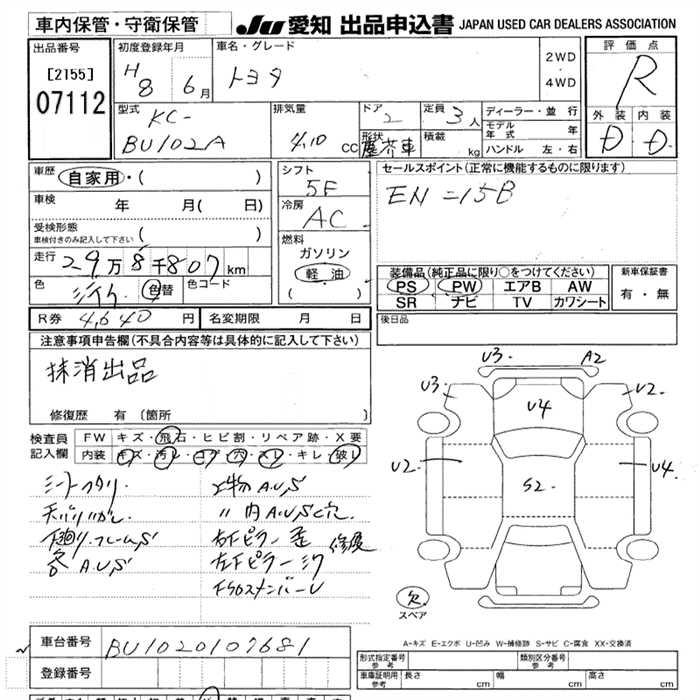 車内保管・守衛保管
JU 愛知 出品申込書 JAPAN USED CAR DEALERS ASSOCIATION
出品番号
[2155]
07112
初度登録年月
H8 6月
車名・グレード
トヨタ
2WD
・
4WD
評価点
R
外装 内装
D D
型式
KC-
BU102A
排気量
4,10 cc
ドア
2
形状
塵芥車
定員
3人
積載
kg
ディーラー・並行
モデル年式 年
ハンドル 左・右
車歴 自家用・( )
車検 年 月( 日)
受検形態
車検付きのみ記入して下さい ( )
走行
29万8千807km
色
色替 色コード
シフト
5F
冷房
AC
燃料
ガソリン
軽油
( )
セールスポイント(正常に機能するものに限ります)
EN=15B
装備品(純正品に限り○をつけてください)
PS PW エアB AW
SR ナビ TV カワシート
新車保証書
有・無
R券 4,640円 名変期限 月 日
後日品
注意事項申告欄(不具合内容等は具体的に記入して下さい)
抹消出品
修復歴 有〔箇所 〕
検査員記入欄
FW キズ・飛石・ヒビ割・リペア跡・X要
内装 キズ・汚レ・コゲ・穴・スレ・キレ・破レ
天バリ
下廻リ、フレームS
各 A.U.S
上物A.U.S
〃 内A.U.S
右Fピラー歪 修復
左Fピラー
U3 A2
U3 U2
U4
U2 U4
S2
欠
スペア
A-キズ E-エクボ U-凹み W-補修跡 S-サビ C-腐食 XX-交換済
車台番号 BU1020107681
登録番号
形式指定番号
参考
類別区分番号
参考
車庫証明用
参考
長さ cm 幅 cm 高さ cm